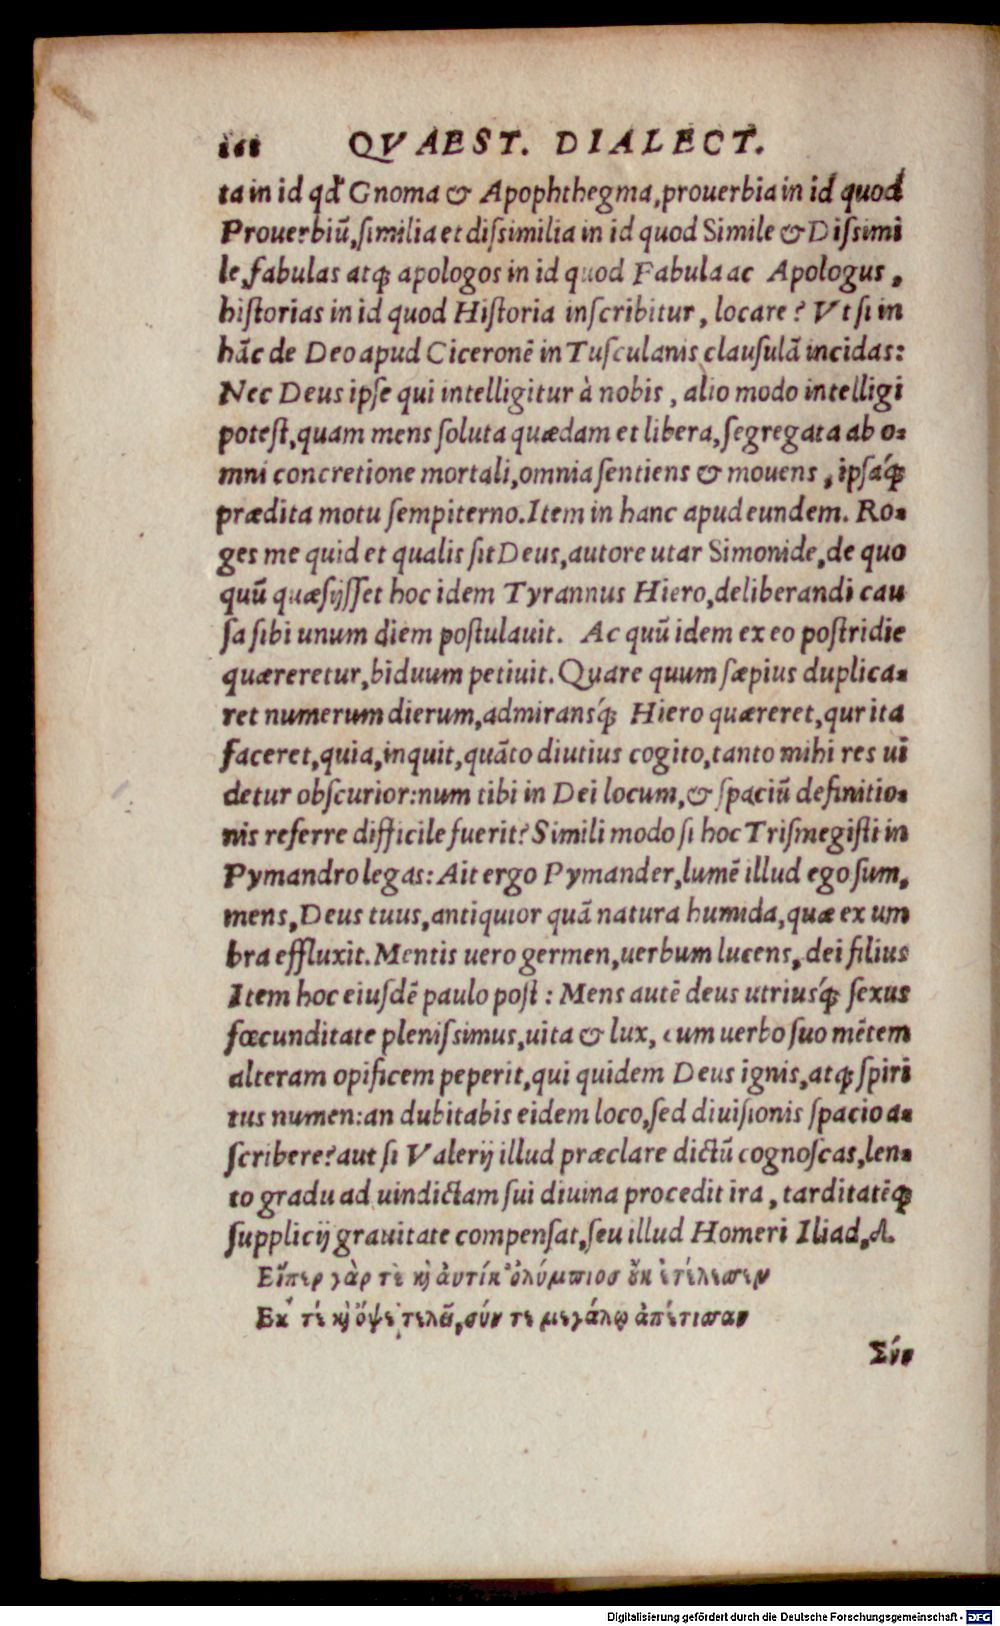 168 QVAEST. DIALECT.
ta in id qđ Gnoma & Apophthegma, prouerbia in id quod
Prouerbiũ, similia et dissimilia in id quod Simile & Dissimi
le, fabulas atq; apologos in id quod Fabula ac Apologus,
historias in id quod Historia inscribitur, locare? Vt si in
hãc de Deo apud Ciceronẽ in Tusculanis clausulã incidas:
Nec Deus ipse qui intelligitur à nobis, alio modo intelligi
potest, quam mens soluta quædam et libera, segregata ab o-
mni concretione mortali, omnia sentiens & mouens, ipsáq;
prædita motu sempiterno. Item in hanc apud eundem. Ro-
ges me quid et qualis sit Deus, autore utar Simonide, de quo
quũ quæsijsset hoc idem Tyrannus Hiero, deliberandi cau
sa sibi unum diem postulauit. Ac quũ idem ex eo postridie
quæreretur, biduum petiuit. Quare quum sæpius duplica-
ret numerum dierum, admiransq́; Hiero quæreret, qur ita
faceret, quia, inquit, quãto diutius cogito, tanto mihi res ui
detur obscurior: num tibi in Dei locum, & spaciũ definitio-
nis referre difficile fuerit? Simili modo si hoc Trismegisti in
Pymandro legas: Ait ergo Pymander, lumẽ illud ego sum,
mens, Deus tuus, antiquior quã natura humida, quæ ex um
bra effluxit. Mentis uero germen, uerbum lucens, dei filius
Item hoc eiusdẽ paulo post: Mens autẽ deus utriusq́; sexus
fœcunditate plenissimus, uita & lux, cum uerbo suo mẽtem
alteram opificem peperit, qui quidem Deus ignis, atq; spiri
tus numen: an dubitabis eidem loco, sed diuisionis spacio a-
scribere? aut si Valerij illud præclare dictũ cognoscas, len-
to gradu ad uindictam sui diuina procedit ira, tarditatẽq;
supplicij grauitate compensat, seu illud Homeri Iliad. Δ.
Εἴπερ γὰρ τὲ κỳ ἀυτίκ' ὀλύμπιος ȣ̓κ ἐτέλεσεν
Εκ τέ κỳ ὀψὲ τελεῖ, σύν τε μεγάλῳ ἀπέτισαν
Σύν
Digitalisierung gefördert durch die Deutsche Forschungsgemeinschaft - DFG